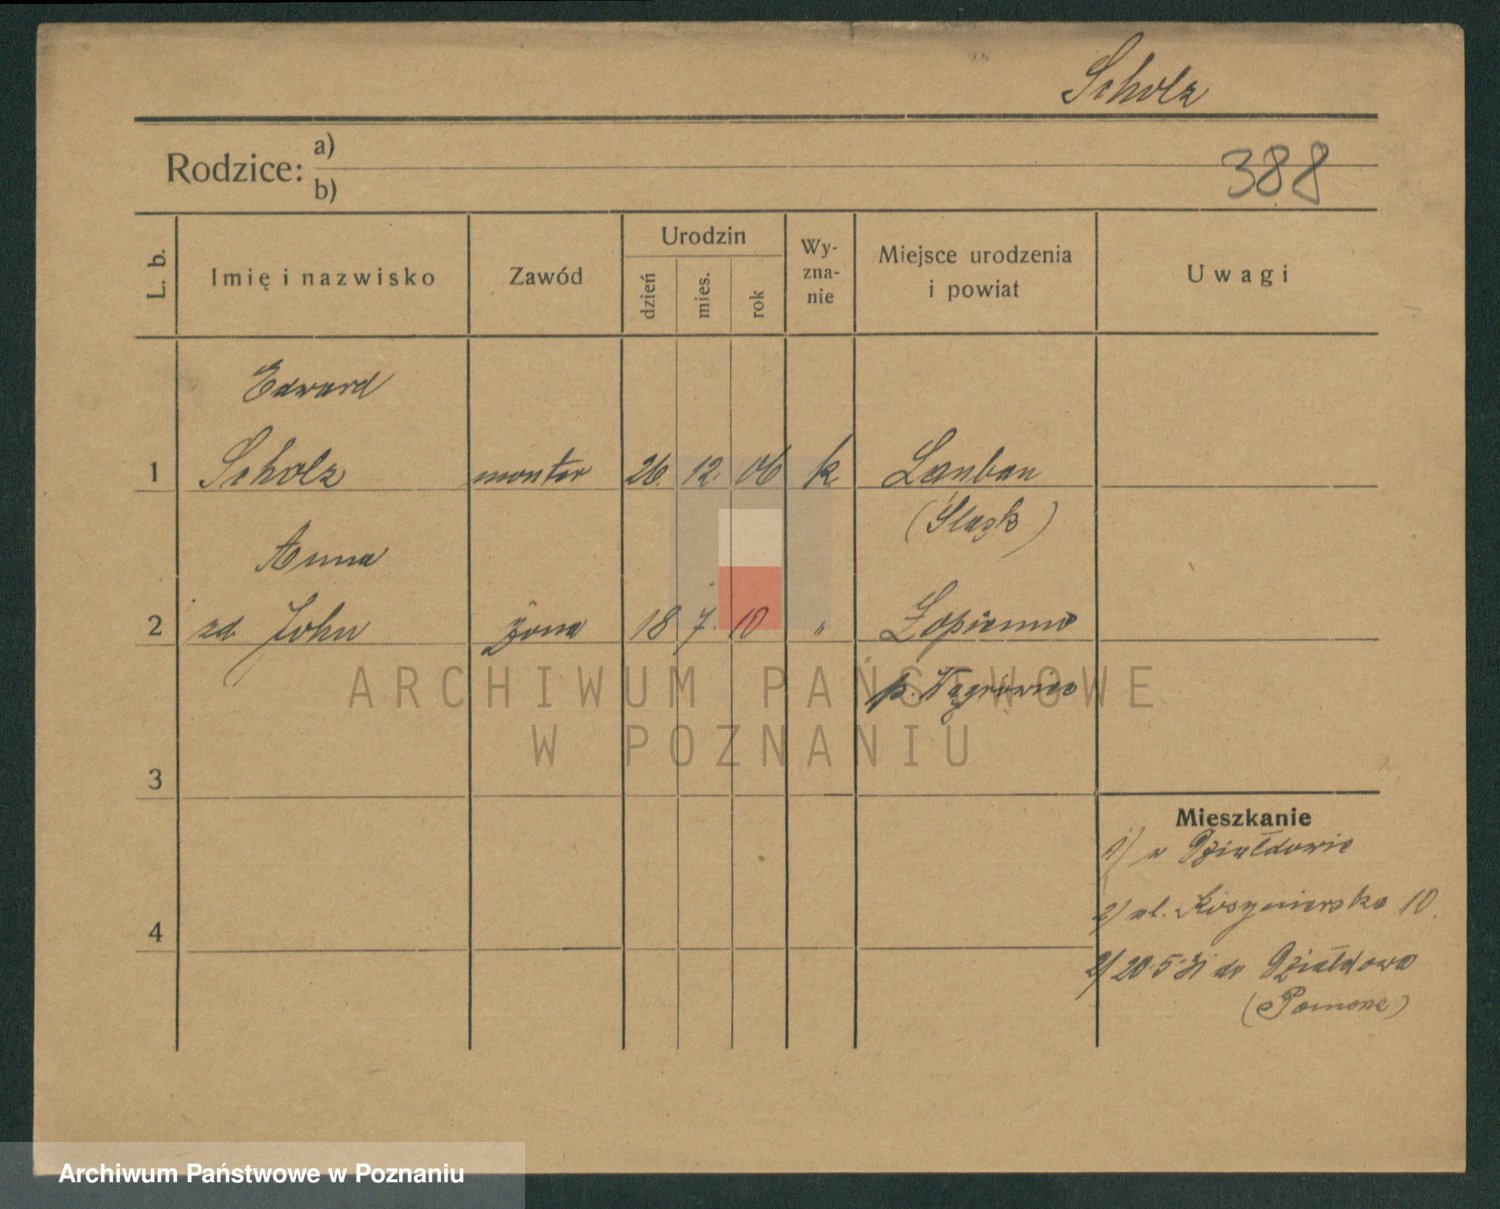 Scholz
Rodzice: a)
b)
388
L. b.
Imię i nazwisko
Zawód
Urodzin
dzień
mies.
rok
Wy-
zna-
nie
Miejsce urodzenia
i powiat
Uwagi
Edward
1 Scholz monter 26. 12. 06 k Lauban
(Śląsk)
Anna
2 zd. John żona 18 7. 10 " Łopienno
p. Wągrówiec
ARCHIWUM PAŃSTWOWE
W POZNANIU
3
4
Mieszkanie
1) w Działdowie
2) ul. Kosynierska 10.
2/ 20.5.31 do Działdowa
(Pomorze)
Archiwum Państwowe w Poznaniu